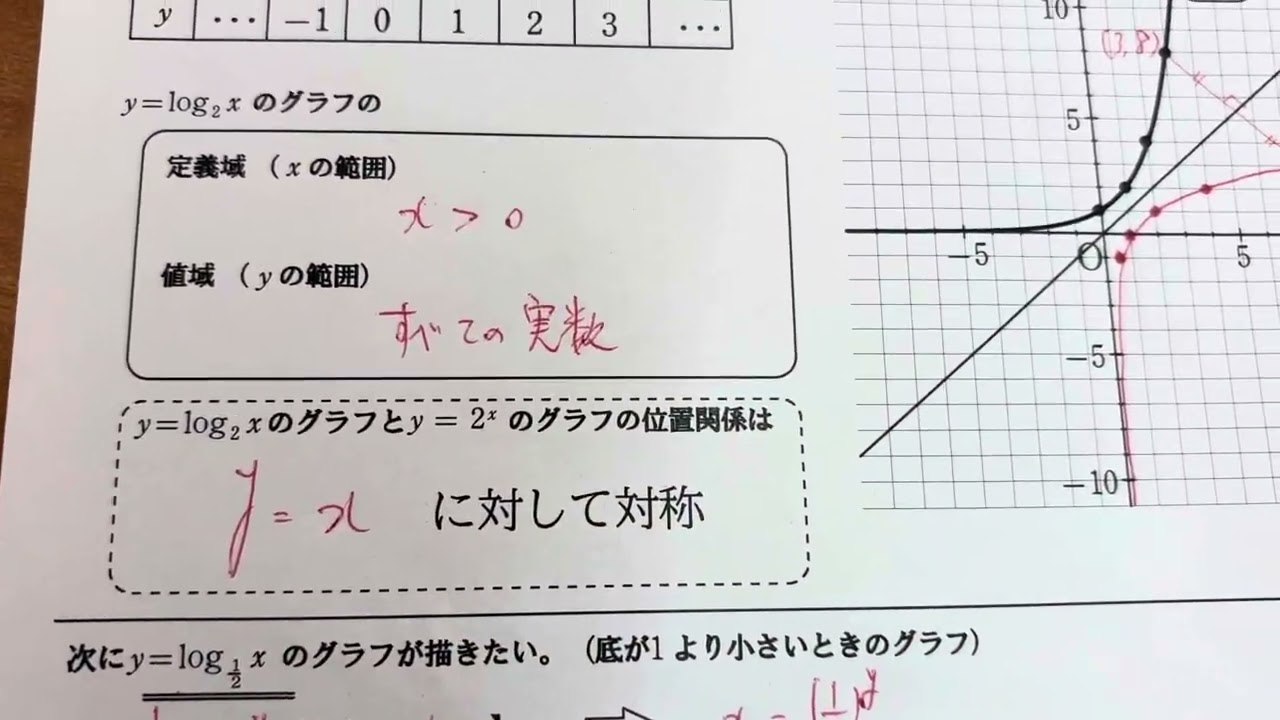 y … −1 0 1 2 3 …
y=log₂x のグラフの
定義域 （xの範囲）
x > 0
値域 （yの範囲）
すべての実数
y=log₂xのグラフとy = 2ˣ のグラフの位置関係は
y = x に対して対称
次にy=log_{1/2} x のグラフが描きたい。（底が1より小さいときのグラフ）
10
(3,8)
5
−5 O 5
−5
−10